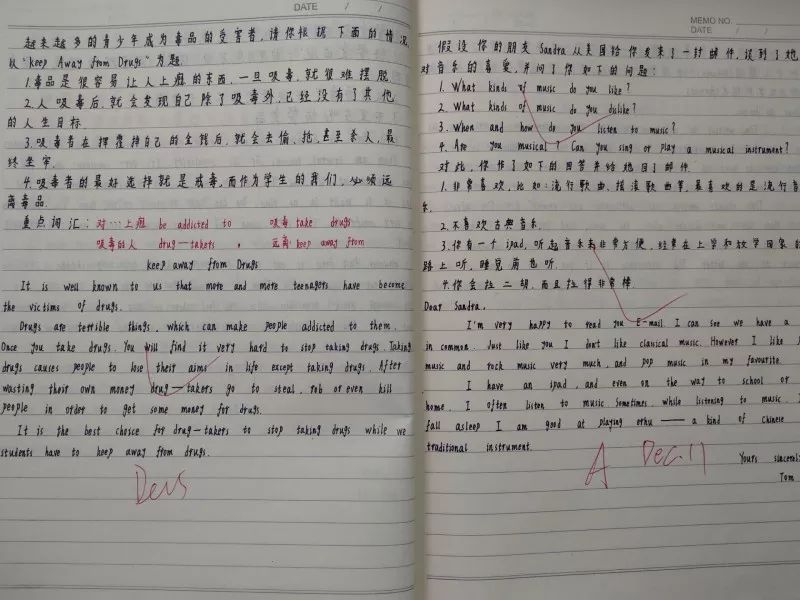 DATE / /
越来越多的青少年成为毒品的受害者,请你根据下面的情况,
以"keep Away from Drugs"为题
1.毒品是很容易让人上瘾的东西,一旦吸毒,就很难摆脱
2.人吸毒后,就会发现自己除了吸毒外,已经没有了其他
的人生目标.
3.吸毒者在挥霍掉自己的金钱后,就会去偷,抢,甚至杀人,最
终坐牢.
4.吸毒者的最好选择就是戒毒,而作为学生的我们,必须远
离毒品.
重点词汇:对…上瘾 be addicted to 吸毒 take drugs
吸毒的人 drug—takers , 远离 keep away from
keep away from Drugs
It is well known to us that more and more teenagers have become
the victims of drugs.
Drugs are terrible things, which can make people addicted to them.
Once you take drugs. You will find it very hard to stop taking drugs. Taking
drugs causes people to lose their aims in life except taking drugs. After
wasting their own money drug—takers go to steal, rob or even kill
people in order to get some money for drugs.
It is the best choice for drug—takers to stop taking drugs while we
students have to keep away from drugs.
MEMO NO.
DATE / /
假设你的朋友 Sandra 从美国给你发来了一封邮件,谈到了她
对音乐的喜爱,并问了你如下的问题:
1. What kinds of music do you like?
2. What kinds of music do you dislike?
3. When and how do you listen to music?
4. Are you musical? Can you sing or play a musical instrument?
对此,你作了如下的回答并给她回了邮件.
1.非常喜欢,比如:流行歌曲、摇滚歌曲等,最喜欢的是流行音
乐.
2.不喜欢古典音乐.
3.你有一个 ipad,听起音乐来非常方便,经常在上学和放学回家的
路上听,睡觉前也听.
4.你会拉二胡,而且拉得非常棒.
Dear Sandra,
I'm very happy to read you E-mail. I can see we have a
in common. Just like you I don't like classical music. However I like
music and rock music very much, and pop music in my favourite.
I have an ipad, and even on the way to school or
home. I often listen to music Sometimes while listening to music.
fall asleep I am good at playing erhu —— a kind of Chinese
traditional instrument.
A Dec.11
Yours sincerel
Tom